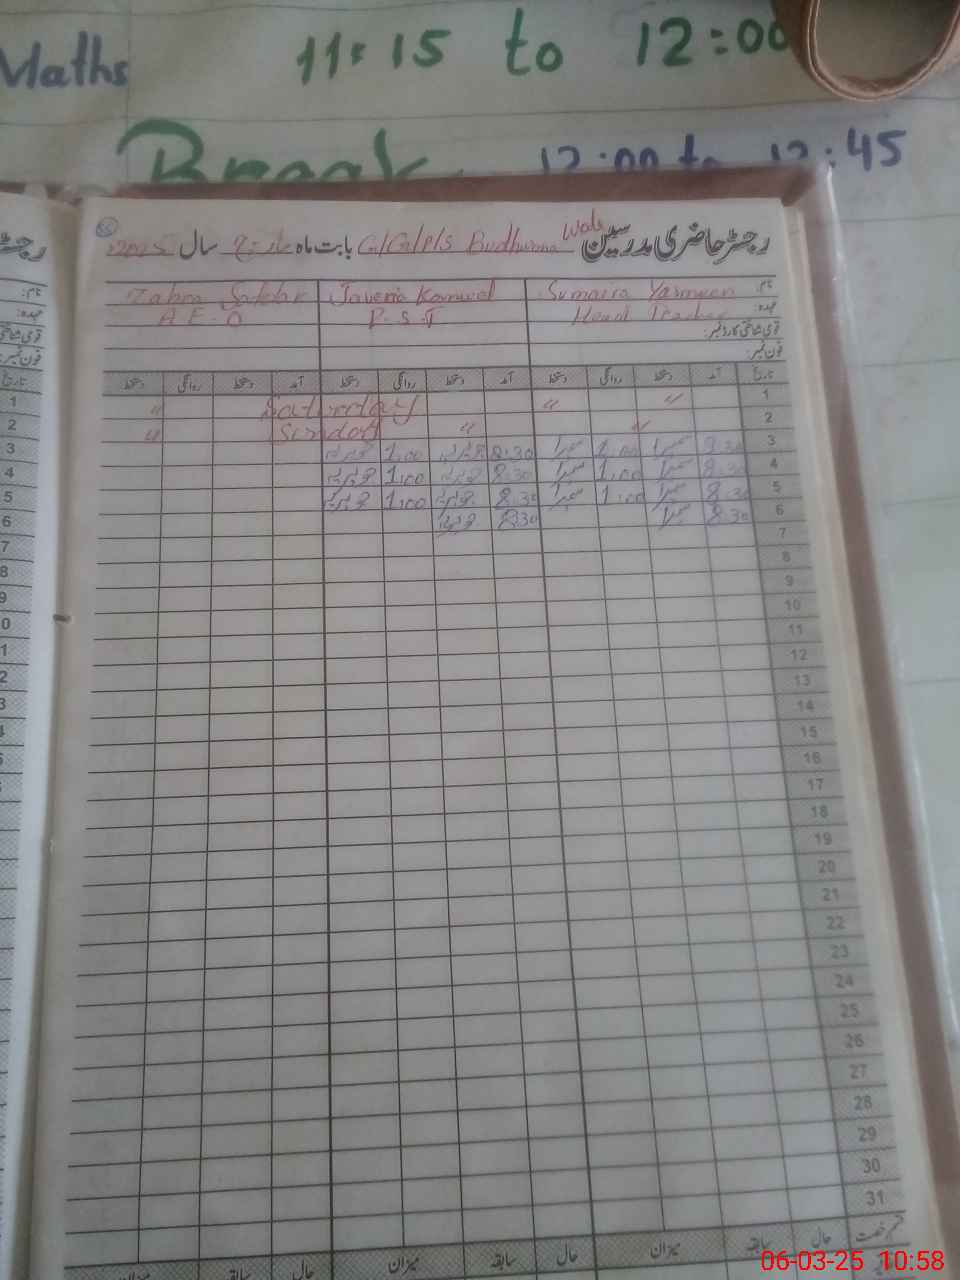 Maths 11:15 to 12:00
Break 12:00 to 12:45
رجسٹر حاضری مدرسین G/G/P/S Budhuana Wala بابت ماہ مارچ سال 2025
نام: Sumaira Yasmeen Javeria Kanwal Zahra Safdar
عہدہ: Head Teacher P.S.T A E O
قومی شناختی کارڈ نمبر:
فون نمبر:
تاریخ آمد دستخط روانگی دستخط آمد دستخط روانگی دستخط آمد دستخط روانگی دستخط
1 〃 〃 Saturday 〃
2 〃 〃 Sunday 〃
3 8:30 سمیرا 1:00 سمیرا 8:30 جویریہ 1:00 جویریہ
4 8:30 سمیرا 1:00 سمیرا 8:30 جویریہ 1:00 جویریہ
5 8:30 سمیرا 1:00 سمیرا 8:30 جویریہ 1:00 جویریہ
6 8:30 سمیرا 8:30 جویریہ
7
8
9
10
11
12
13
14
15
16
17
18
19
20
21
22
23
24
25
26
27
28
29
30
31
قسم رخصت حال سابقہ میزان حال سابقہ میزان حال سابقہ میزان
06-03-25 10:58